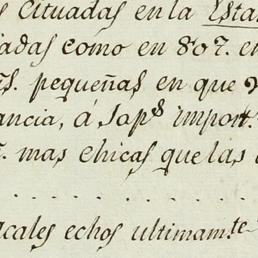 s cituadas en la Esta
adas como en 807. en
s. pequeñas en que
ancia, á sap.s import.
. mas chicas que las
. . . . . . . . . .
acales echos ultimam.te